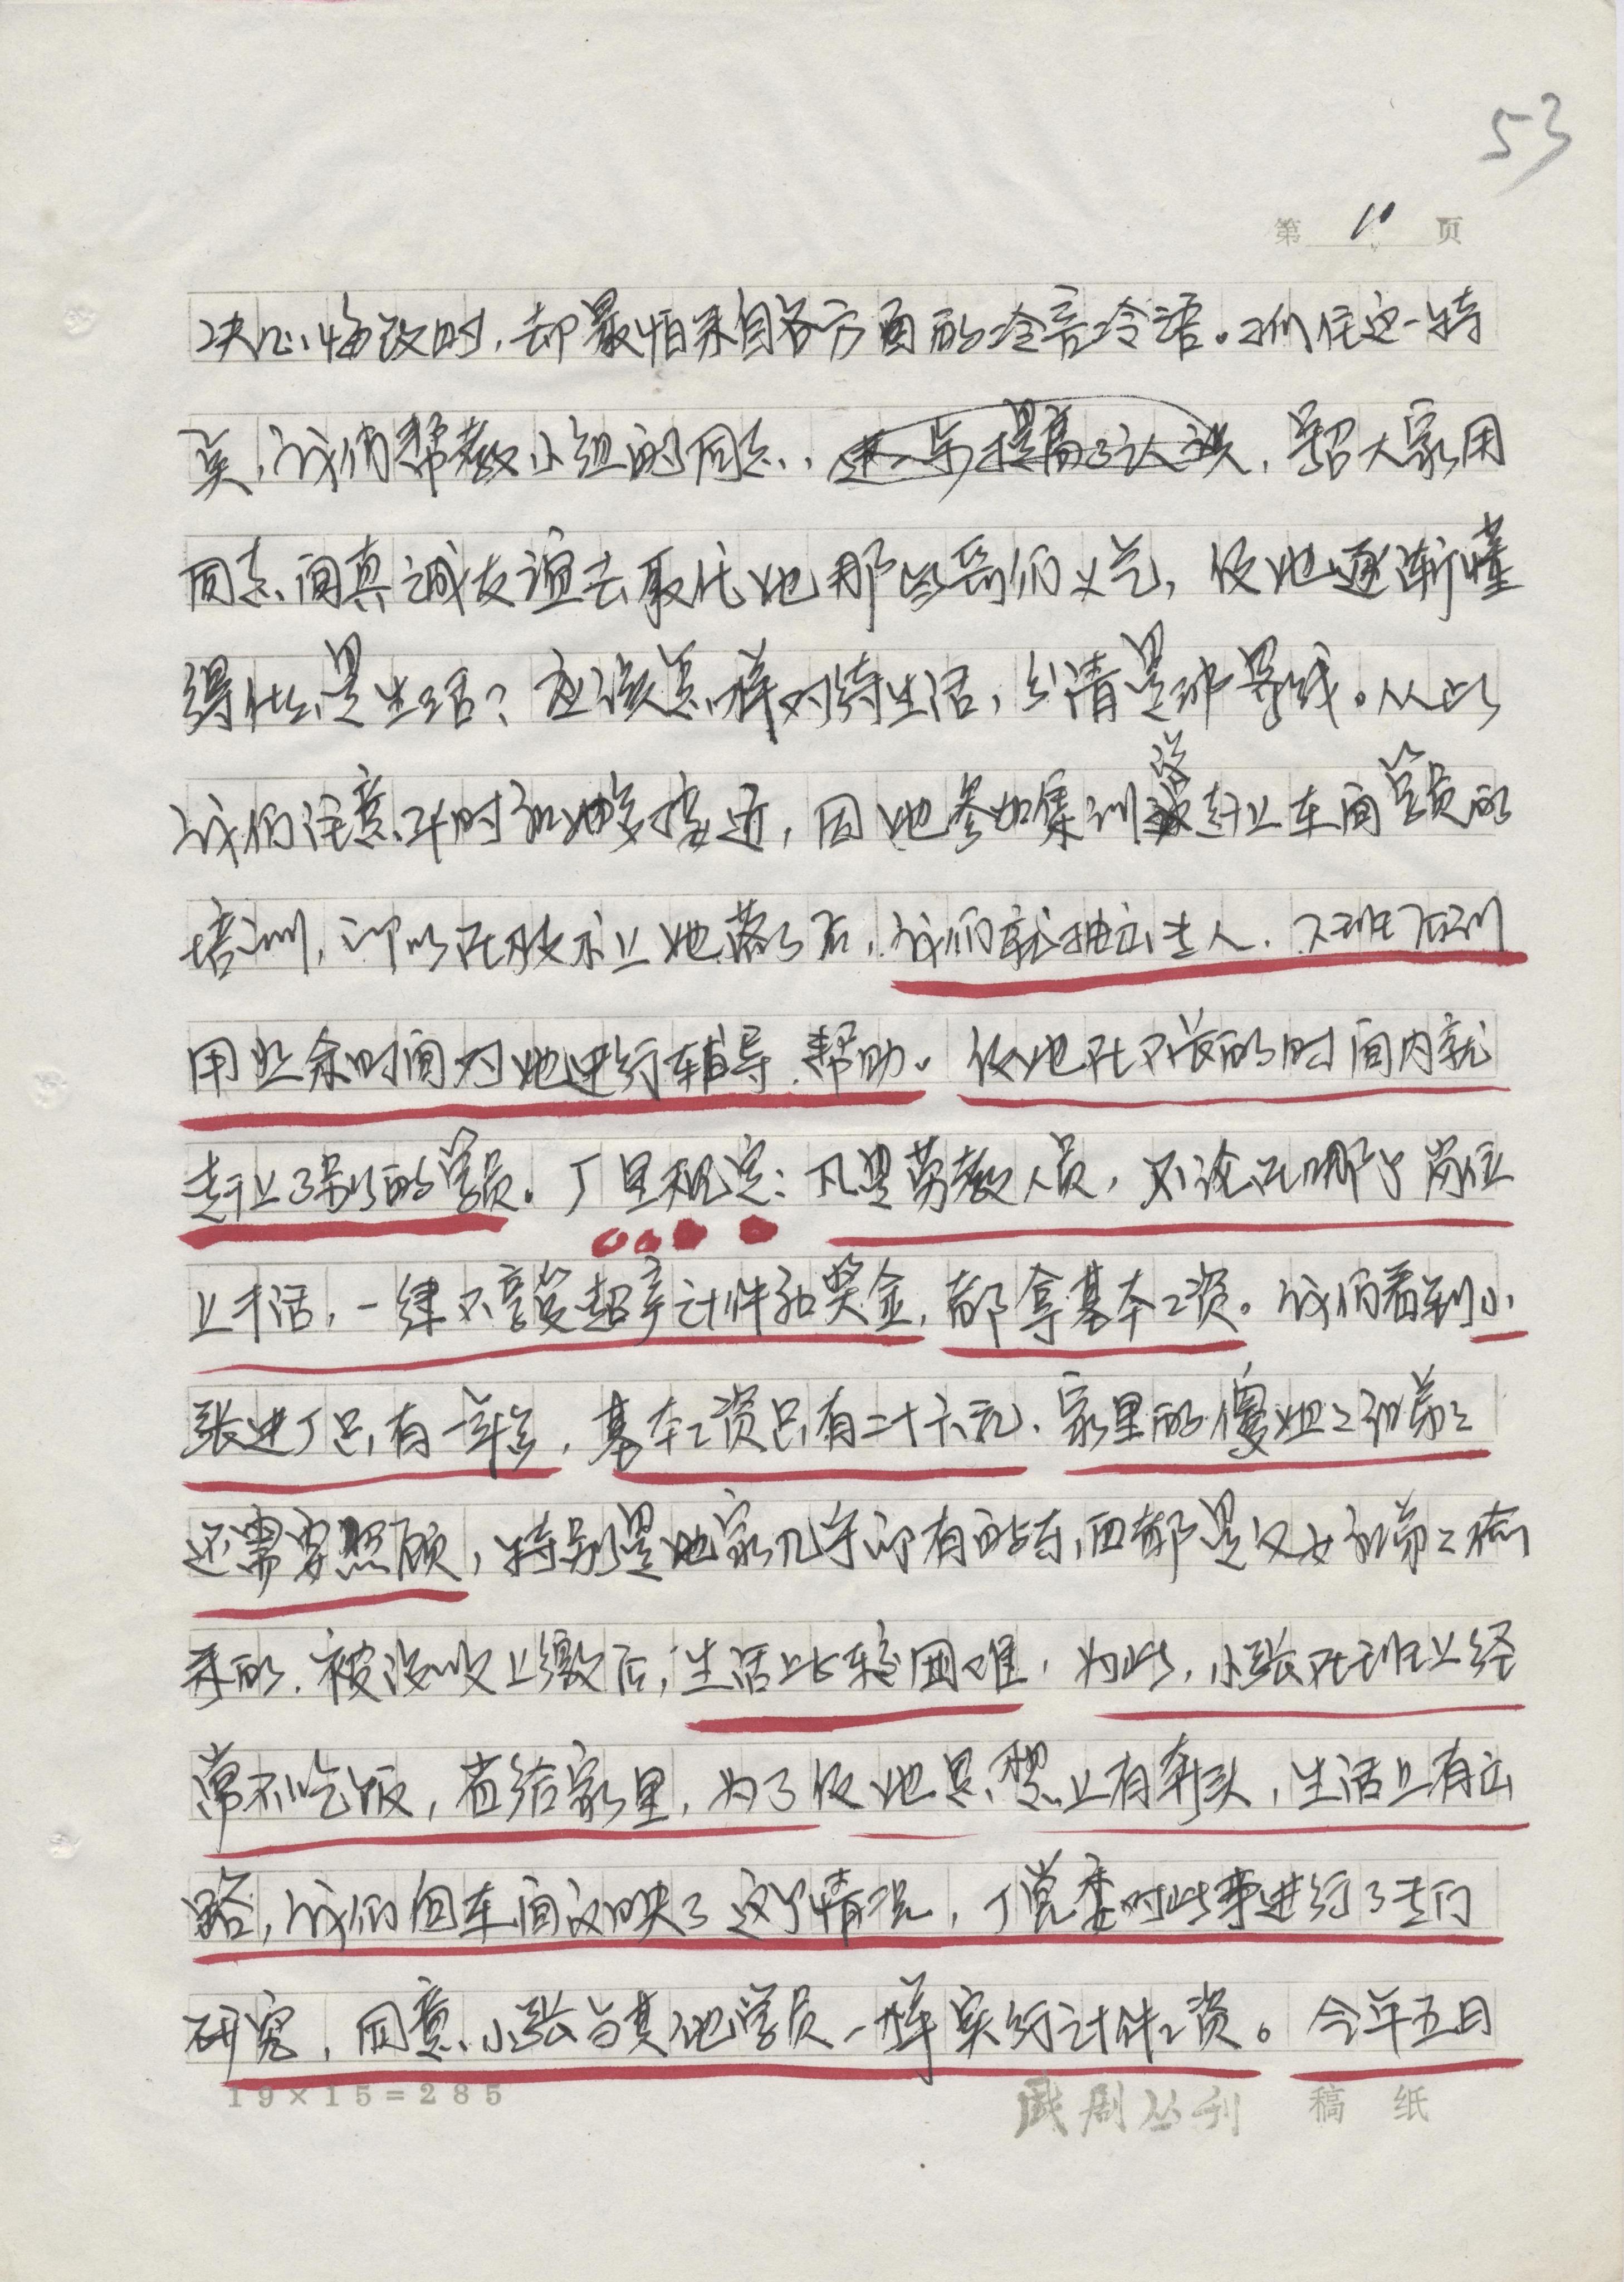 53
第 10 页
决心悔改时，却最怕来自各方面的冷言冷语。抓住这一特
点，我们帮教小组的同志，进一步提高了认识，号召大家用
同志间真诚友谊去取代她那些哥们义气，使她逐渐懂
得什么是生活？应该怎样对待生活，分清是非界线。从此
我们注意平时和她多接近，因她参加集训没赶上车间学员的
培训，所以在技术上她落了后，我们就抽出专人，下班后利
用业余时间对她进行辅导、帮助。使她在不长的时间内就
赶上了别的学员。厂里规定：凡是劳教人员，不论在哪个岗位
上干活，一律不享受超产计件和奖金，都拿基本工资。我们看到小
张进厂只有一年多，基本工资只有二十六元、家里的傻姐姐和弟弟
还需要照顾，特别是她家几乎所有的东西都是父女和弟弟偷
来的，被没收上缴后，生活比较困难，为此，小张在班上经
常不吃饭，省给家里，为了使她思想上有奔头，生活上有出
路，我们向车间反映了这个情况，厂党委对此事进行了专门
研究，同意小张与其他学员一样实行计件工资。今年五月
19×15=285 戏剧丛刊 稿纸